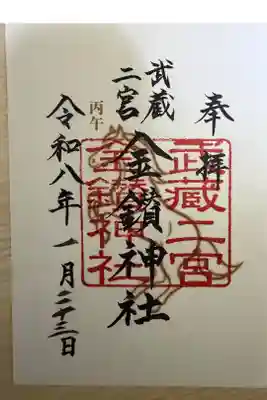 奉拝
武蔵
二宮
金鑚神社
丙午
令和八年一月二十三日
武蔵二宮
金鑚神社